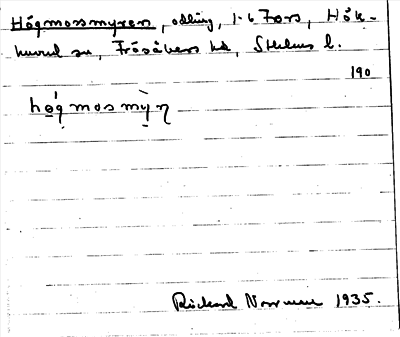 Högmossmyren, odling, 1-6 Fors, Hök-
huvud sn, Frösåkers hd, Sthlms l.
190
högmosmỳn
Rickard Norman 1935.